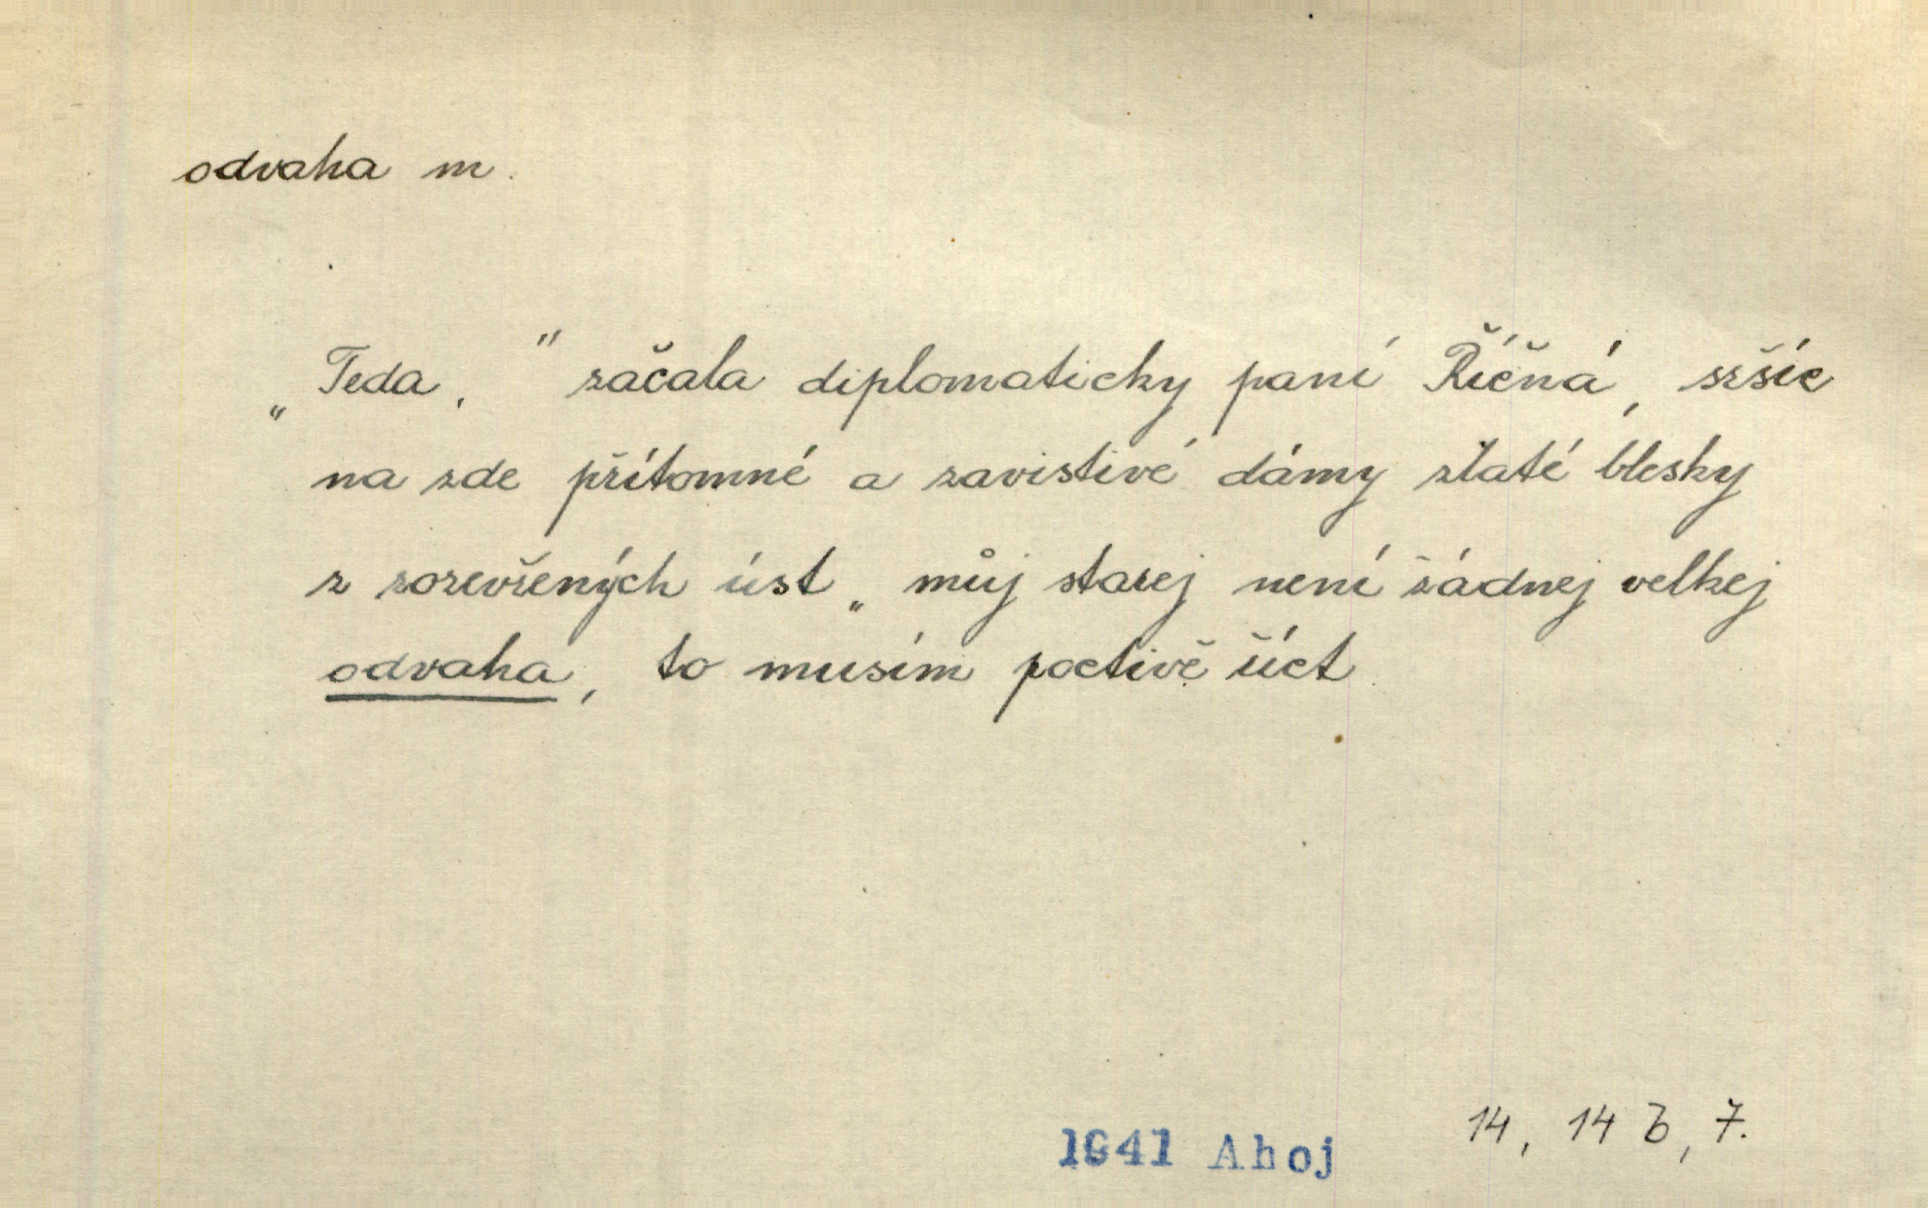 odvaha m.
„Teda," začala diplomaticky paní Říčná, sršíc
na zde přítomné a závistivé dámy zlaté blesky
z rozevřených úst „můj starej není žádnej velkej
odvaha, to musím poctivě říct
1941 Ahoj 14, 14 b, 7.